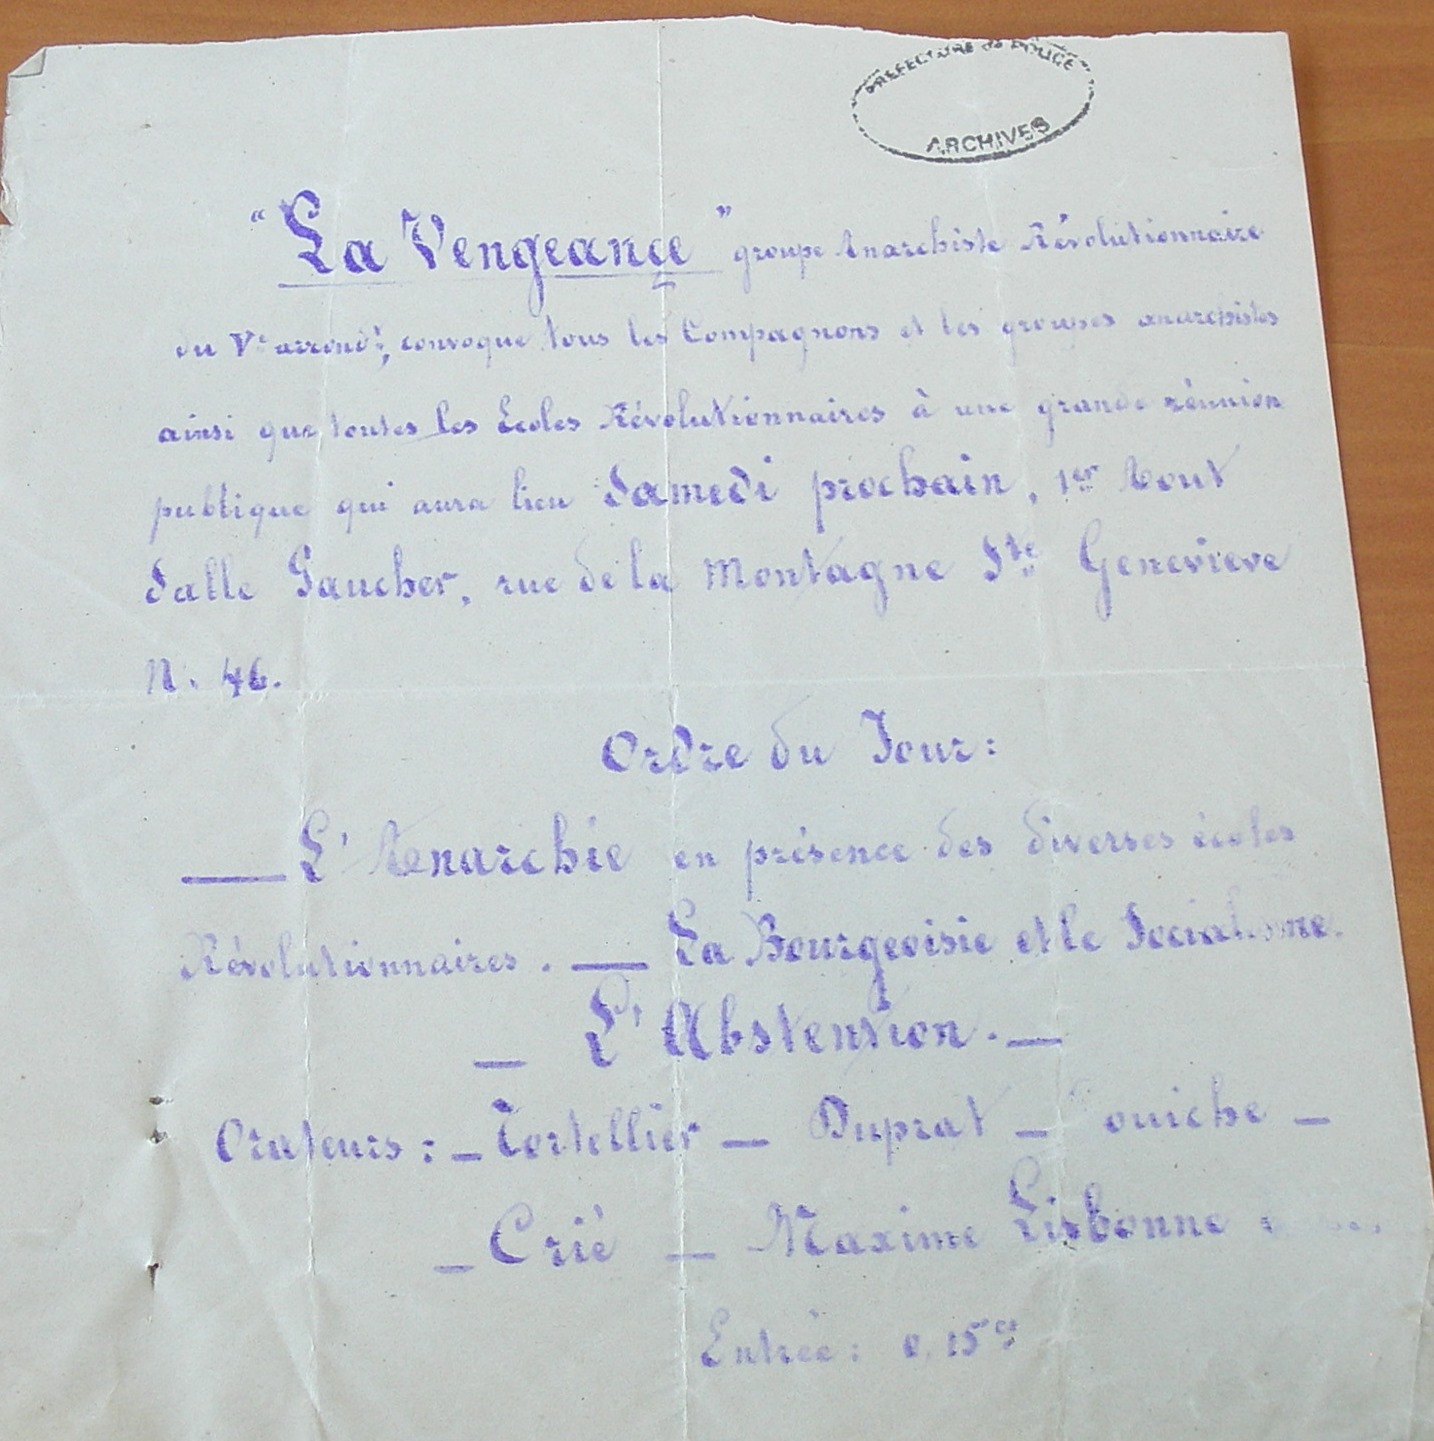 PREFECTURE de POLICE
ARCHIVES
"La Vengeance" groupe Anarchiste Révolutionnaire
du Ve arrondt, convoque tous les Compagnons et les groupes anarchistes
ainsi que toutes les Ecoles Révolutionnaires à une grande réunion
publique qui aura lieu Samedi prochain, 1er Aout
Salle Gaucher, rue de la Montagne Ste Genevieve
N. 46.
Ordre du Jour:
— L'Anarchie en présence des diverses écoles
Révolutionnaires. — La Bourgeoisie et le Socialisme.
— L'Abstention. —
Orateurs: — Tortellier — Duprat — ouiche —
— Crié — Maxime Lisbonne
Entrée: 0,15 cs